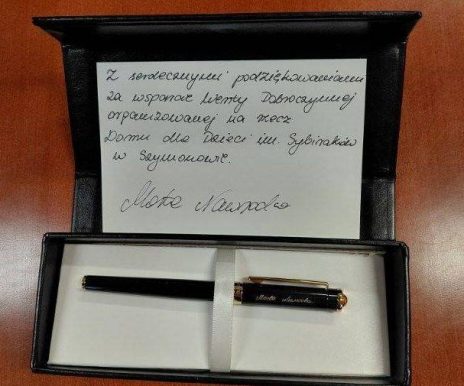 Z serdecznymi podziękowaniami
za wsparcie Kwesty Dobroczynnej
organizowanej na rzecz
Domu dla Dzieci im. Sybiraków
w Szymonowie.
Marta Nawrocka
Marta Nawrocka